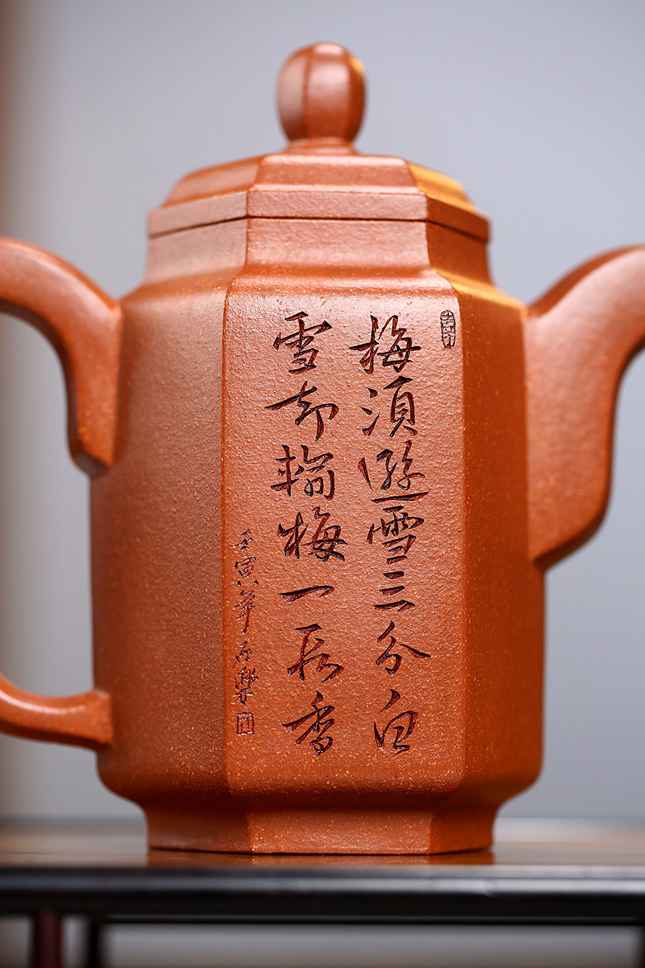 梅湏遜雪三分白
雪却輸梅一段香
壬寅年